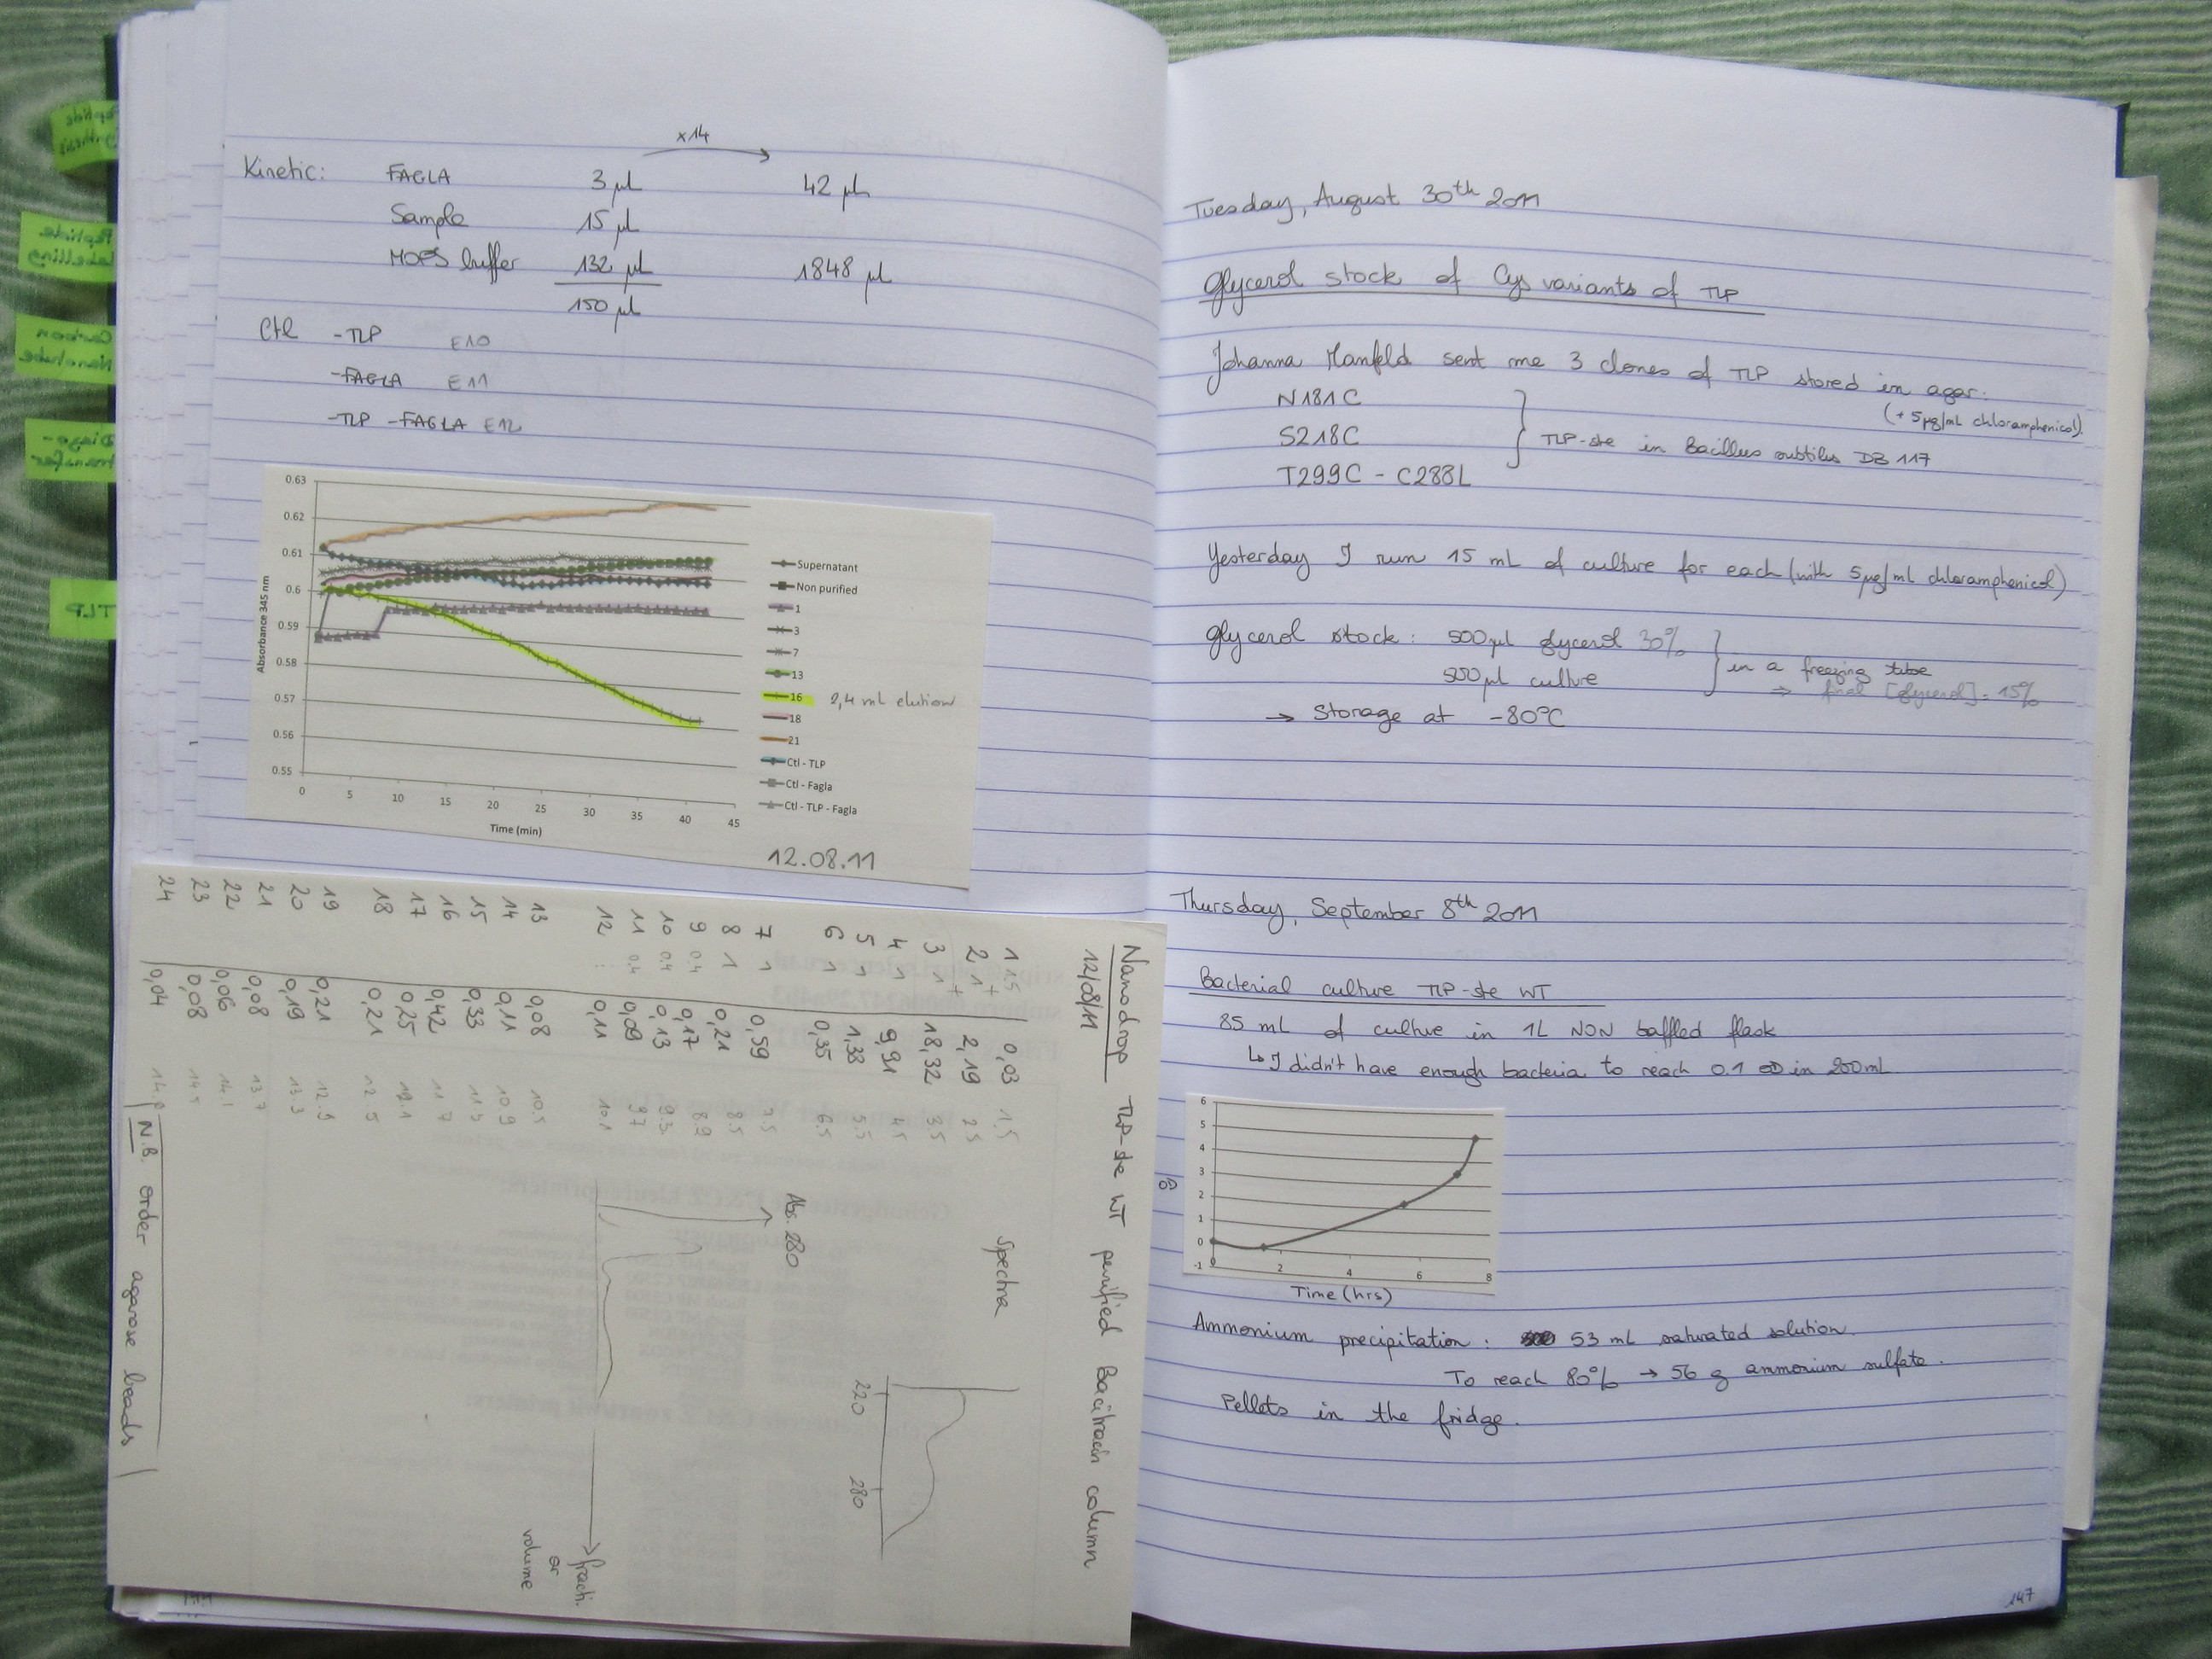 x14
Kinetic: FAGLA 3 µl 42 µl
Sample 15 µl
MOPS buffer 132 µl 1848 µl
150 µl
Ctl -TLP E10
-FAGLA E11
-TLP -FAGLA E12
0.63
0.62
0.61
0.6
0.59
0.58
0.57
0.56
0.55
Absorbance 345 nm
0 5 10 15 20 25 30 35 40 45
Time (min)
Supernatant
Non purified
1
3
7
13
16 2,4 mL elution
18
21
Ctl - TLP
Ctl - Fagla
Ctl - TLP - Fagla
12.08.11
Nanodrop TLP-ste WT purified Bacitracin column
12/08/11
1 1.5 0,03 1.5
2 1+ 2,19 2.5
3 1+ 18,32 3.5
4 1 9,91 4.5
5 1 1,38 5.5
6 1 0,35 6.5
7 1 0,59 7.5
8 1 0,21 8.5
9 0.4 0,17 8.9
10 0.4 0,13 9.3
11 0.4 0,09 9.7
12 : 0,11 10.1
13 0,08 10.5
14 0,11 10.9
15 0,33 11.3
16 0,42 11.7
17 0,25 12.1
18 0,21 12.5
19 0,21 12.9
20 0,19 13.3
21 0,08 13.7
22 0,06 14.1
23 0,08 14.5
24 0,04
Spectra
220 280
Abs. 280
fracti.
or
volume
N.B. order agarose beads
Peptide
Labelling
Carbon
Nanotube
Diazo-
transfer
TLP
Tuesday, August 30th 2011
Glycerol stock of Cys variants of TLP
Johanna Manfeld sent me 3 clones of TLP stored in agar.
(+ 5µg/mL chloramphenicol).
N181C
S218C
TLP-ste in Bacillus subtilus DB 117
T299C - C288L
Yesterday I run 15 mL of culture for each (with 5µg/mL chloramphenicol)
Glycerol stock: 500µl glycerol 30%
500µl culture
in a freezing tube
⇒ final [glycerol] = 15%
→ Storage at -80°C
Thursday, September 8th 2011
Bacterial culture TLP-ste WT
85 mL of culture in 1L NON baffled flask
↳ I didn't have enough bacteria to reach 0.1 OD in 200mL
6
5
4
3
2
1
0
-1
OD
0 2 4 6 8
Time (hrs)
Ammonium precipitation: 53 mL saturated solution.
To reach 80% → 56 g ammonium sulfate.
Pellets in the fridge.
147